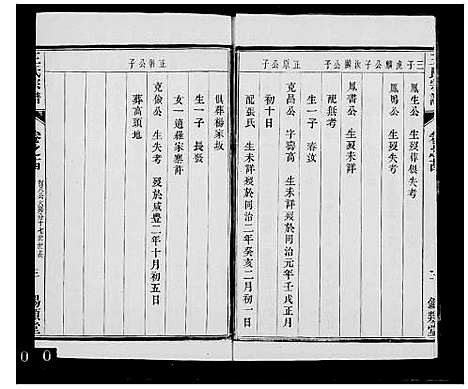 鳳生公 生歿葬俱失考
鳳鳴公 生歿失考
鳳書公 生歿失考
配無考
生一子 春汝
正原公子
克昌公 字壽高 生未詳歿於同治元年壬戌正月
初十日
配張氏 生未詳歿於同治二年癸亥二月初一日
俱葬楊家坂
生一子 長發
女一 適羅家寨許
正幹公子
克儉公 生失考 歿於咸豐二年十月初五日
葬高頭地
王氏宗譜
0 0